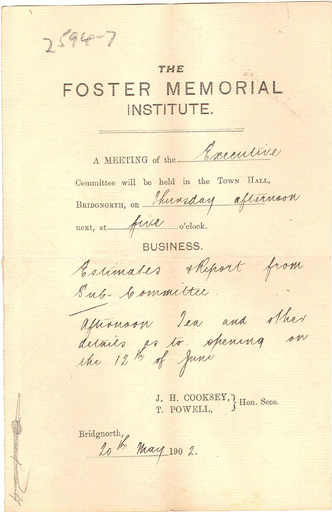 2594-7
THE
FOSTER MEMORIAL
INSTITUTE.
A MEETING of the Executive
Committee will be held in the TOWN HALL,
BRIDGNORTH, on Thursday afternoon
next, at five o'clock.
BUSINESS.
Estimates & Report from
Sub-Committee
Afternoon Tea and other
details as to opening on
the 12th of June
J. H. COOKSEY, } Hon. Secs.
T. POWELL,
Bridgnorth,
20th May 1902.